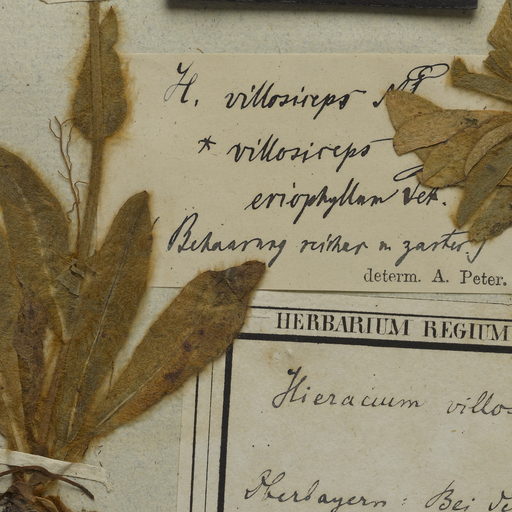 H. villosiceps NP
* villosiceps
eriophyllum Vet.
Behaarung reicher u. zarter
determ. A. Peter.
HERBARIUM REGIUM
Hieracium villos
Oberbayern: Bei de